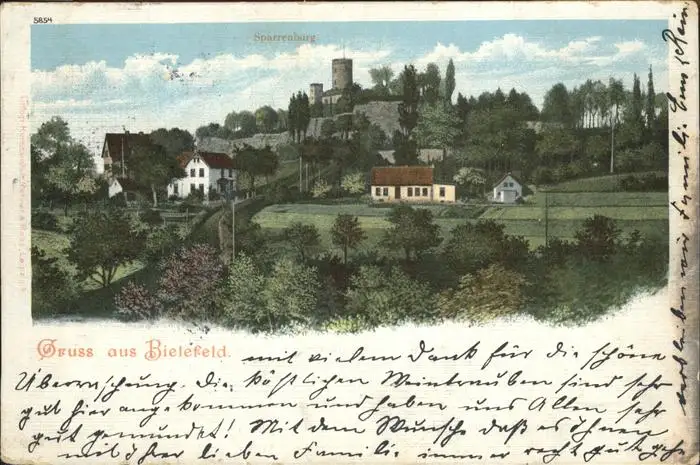 5854
Sparrenburg
Gruss aus Bielefeld.
mit vielem Dank für die schöne
Überraschung. Die köstlichen Weintrauben sind sehr
gut hier angekommen und haben uns Allen sehr
gut gemundet! Mit dem Wunsche daß es Ihnen
und Ihrer lieben Familie immer recht gut gehe
verbleiben wir Familie